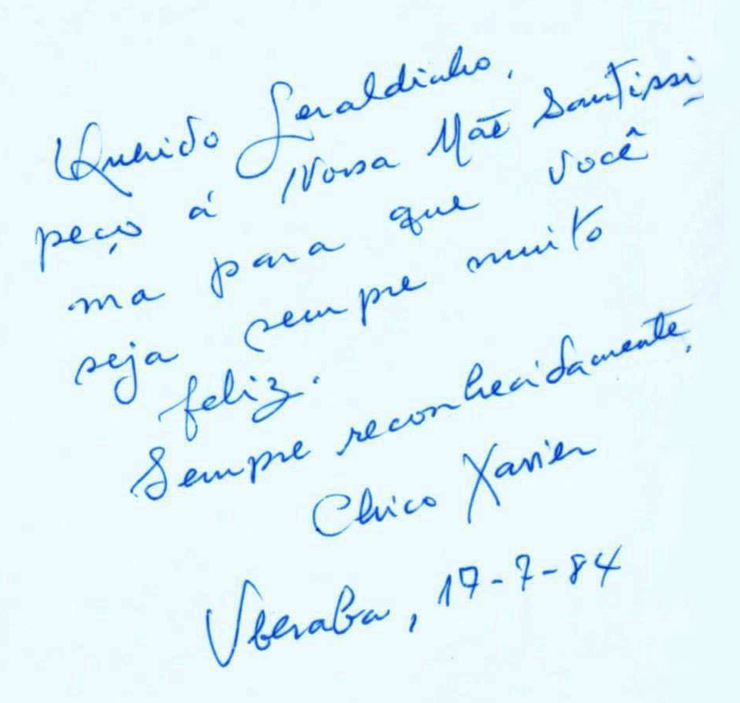 Querido Geraldinho,
peço á Nossa Mãe Santissi-
ma para que você
seja sempre muito
feliz.
Sempre reconhecidamente,
Chico Xavier
Uberaba, 17-7-84